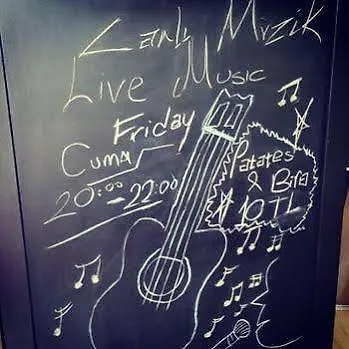 Canlı Müzik
Live Music
Friday
Cuma
20:00 - 22:00
Patates
& Bira
10 TL